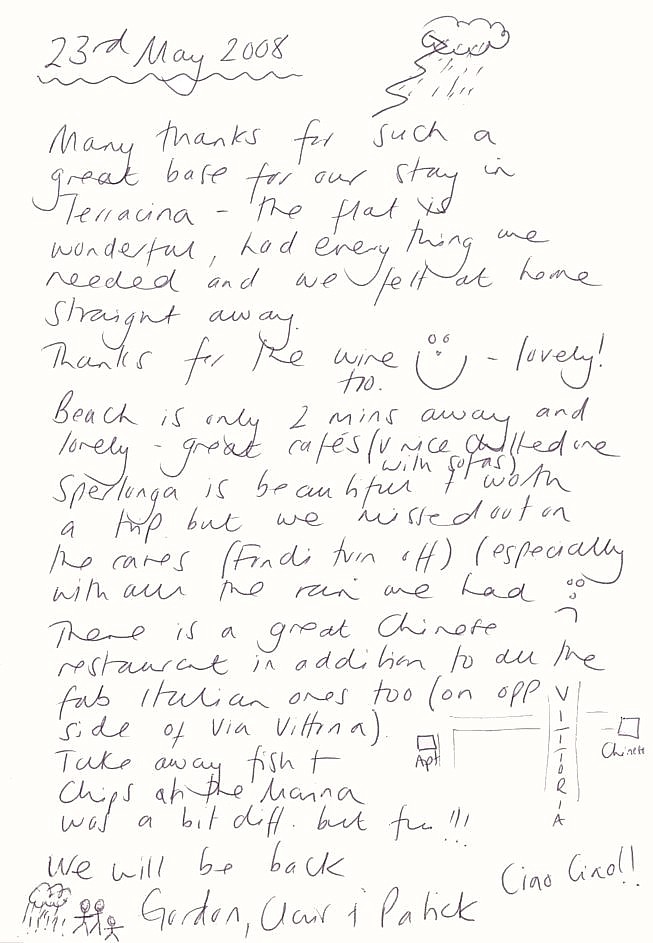 23rd May 2008
Many thanks for such a
great base for our stay in
Terracina - the flat is
wonderful, had every thing we
needed and we felt at home
straight away.
Thanks for the wine - lovely!
too.
Beach is only 2 mins away and
lovely - great cafés (v nice chilled one
with sofas)
Sperlonga is beautiful + worth
a trip but we missed out on
the caves (Fondi turn off) (especially
with all the rain we had
There is a great Chinese
restaurant in addition to all the
fab Italian ones too (on opp
side of Via Vittoria).
VITTORIA
Apt
Chinese
Take away fish +
chips at the Marina
was a bit diff. but fun!!!
We will be back
Ciao Ciao!!
Gordon, Clair + Patick